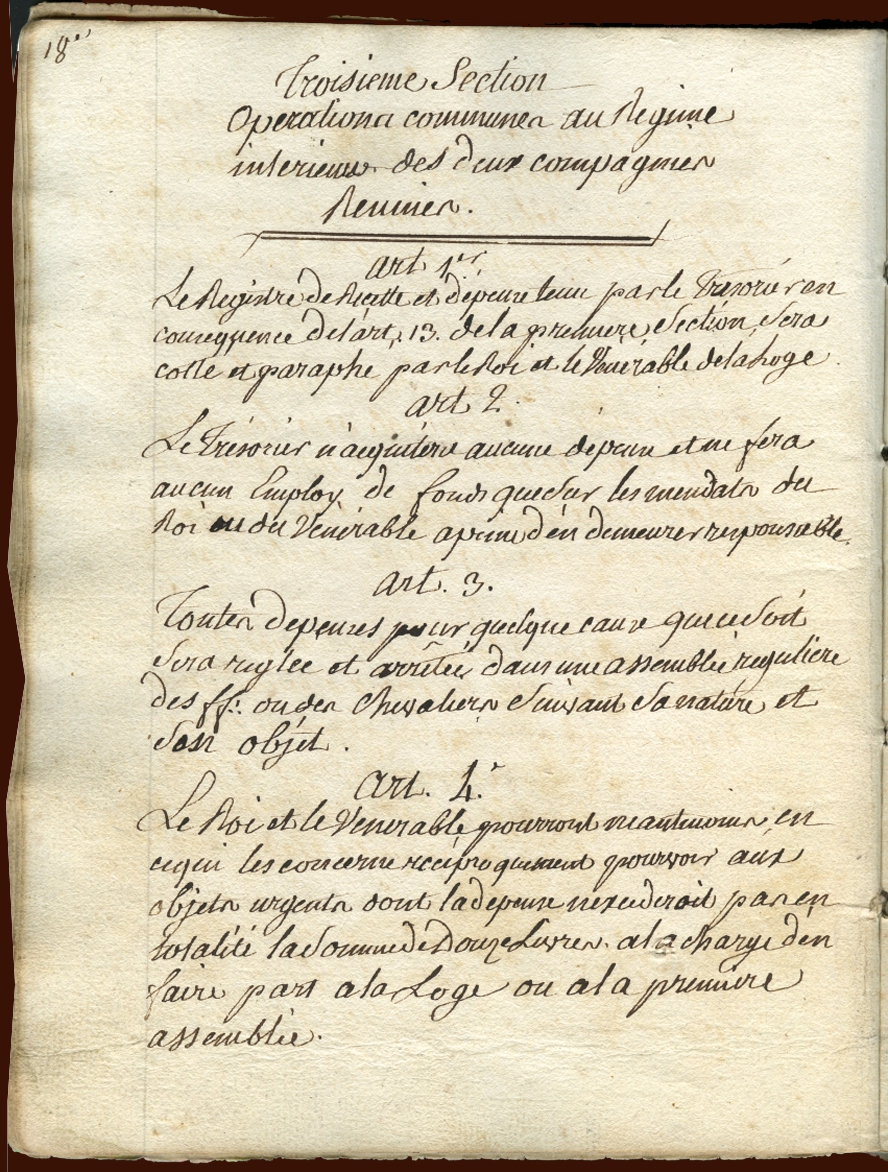 18
Troisieme Section
Operations communes au Regime
interieur des deux compagnies
Reunies.
art 1er
Le Registre de Recette et dépense tenu par le Trésorier en
consequence de l'art. 13. de la premiere Section, Sera
cotté et paraphé par le Roi et le Vénérable de la Loge
art 2.
Le Trésorier n'acquittera aucune dépense et ne fera
aucun Employ de fonds que Sur les mendats du
Roi ou du Vénérable a peine d'en demeurer responsable.
art. 3.
Toutes depenses pour quelque cause que ce Soit
Sera reglée et arrêtée dans une assemblée reguliere
des ff: ou des Chevaliers Suivant Sa nature et
Son objet.
art. 4.
Le Roi et le Venerable pourront neantmoins en
ce qui les concerne reciproquement pourvoir aux
objets urgents dont la depense n'excederoit pas en
totalité la Somme de Douze Livres. a la charge d'en
faire part a la Loge ou a la premiere
assemblée.